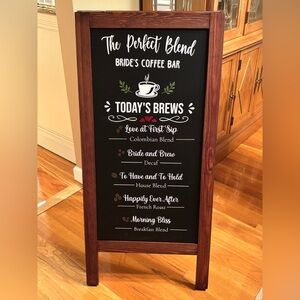 The Perfect Blend
BRIDE'S COFFEE BAR
TODAY'S BREWS
Love at First Sip
Colombian Blend
Bride and Brew
Decaf
To Have and To Hold
House Blend
Happily Ever After
French Roast
Morning Bliss
Breakfast Blend